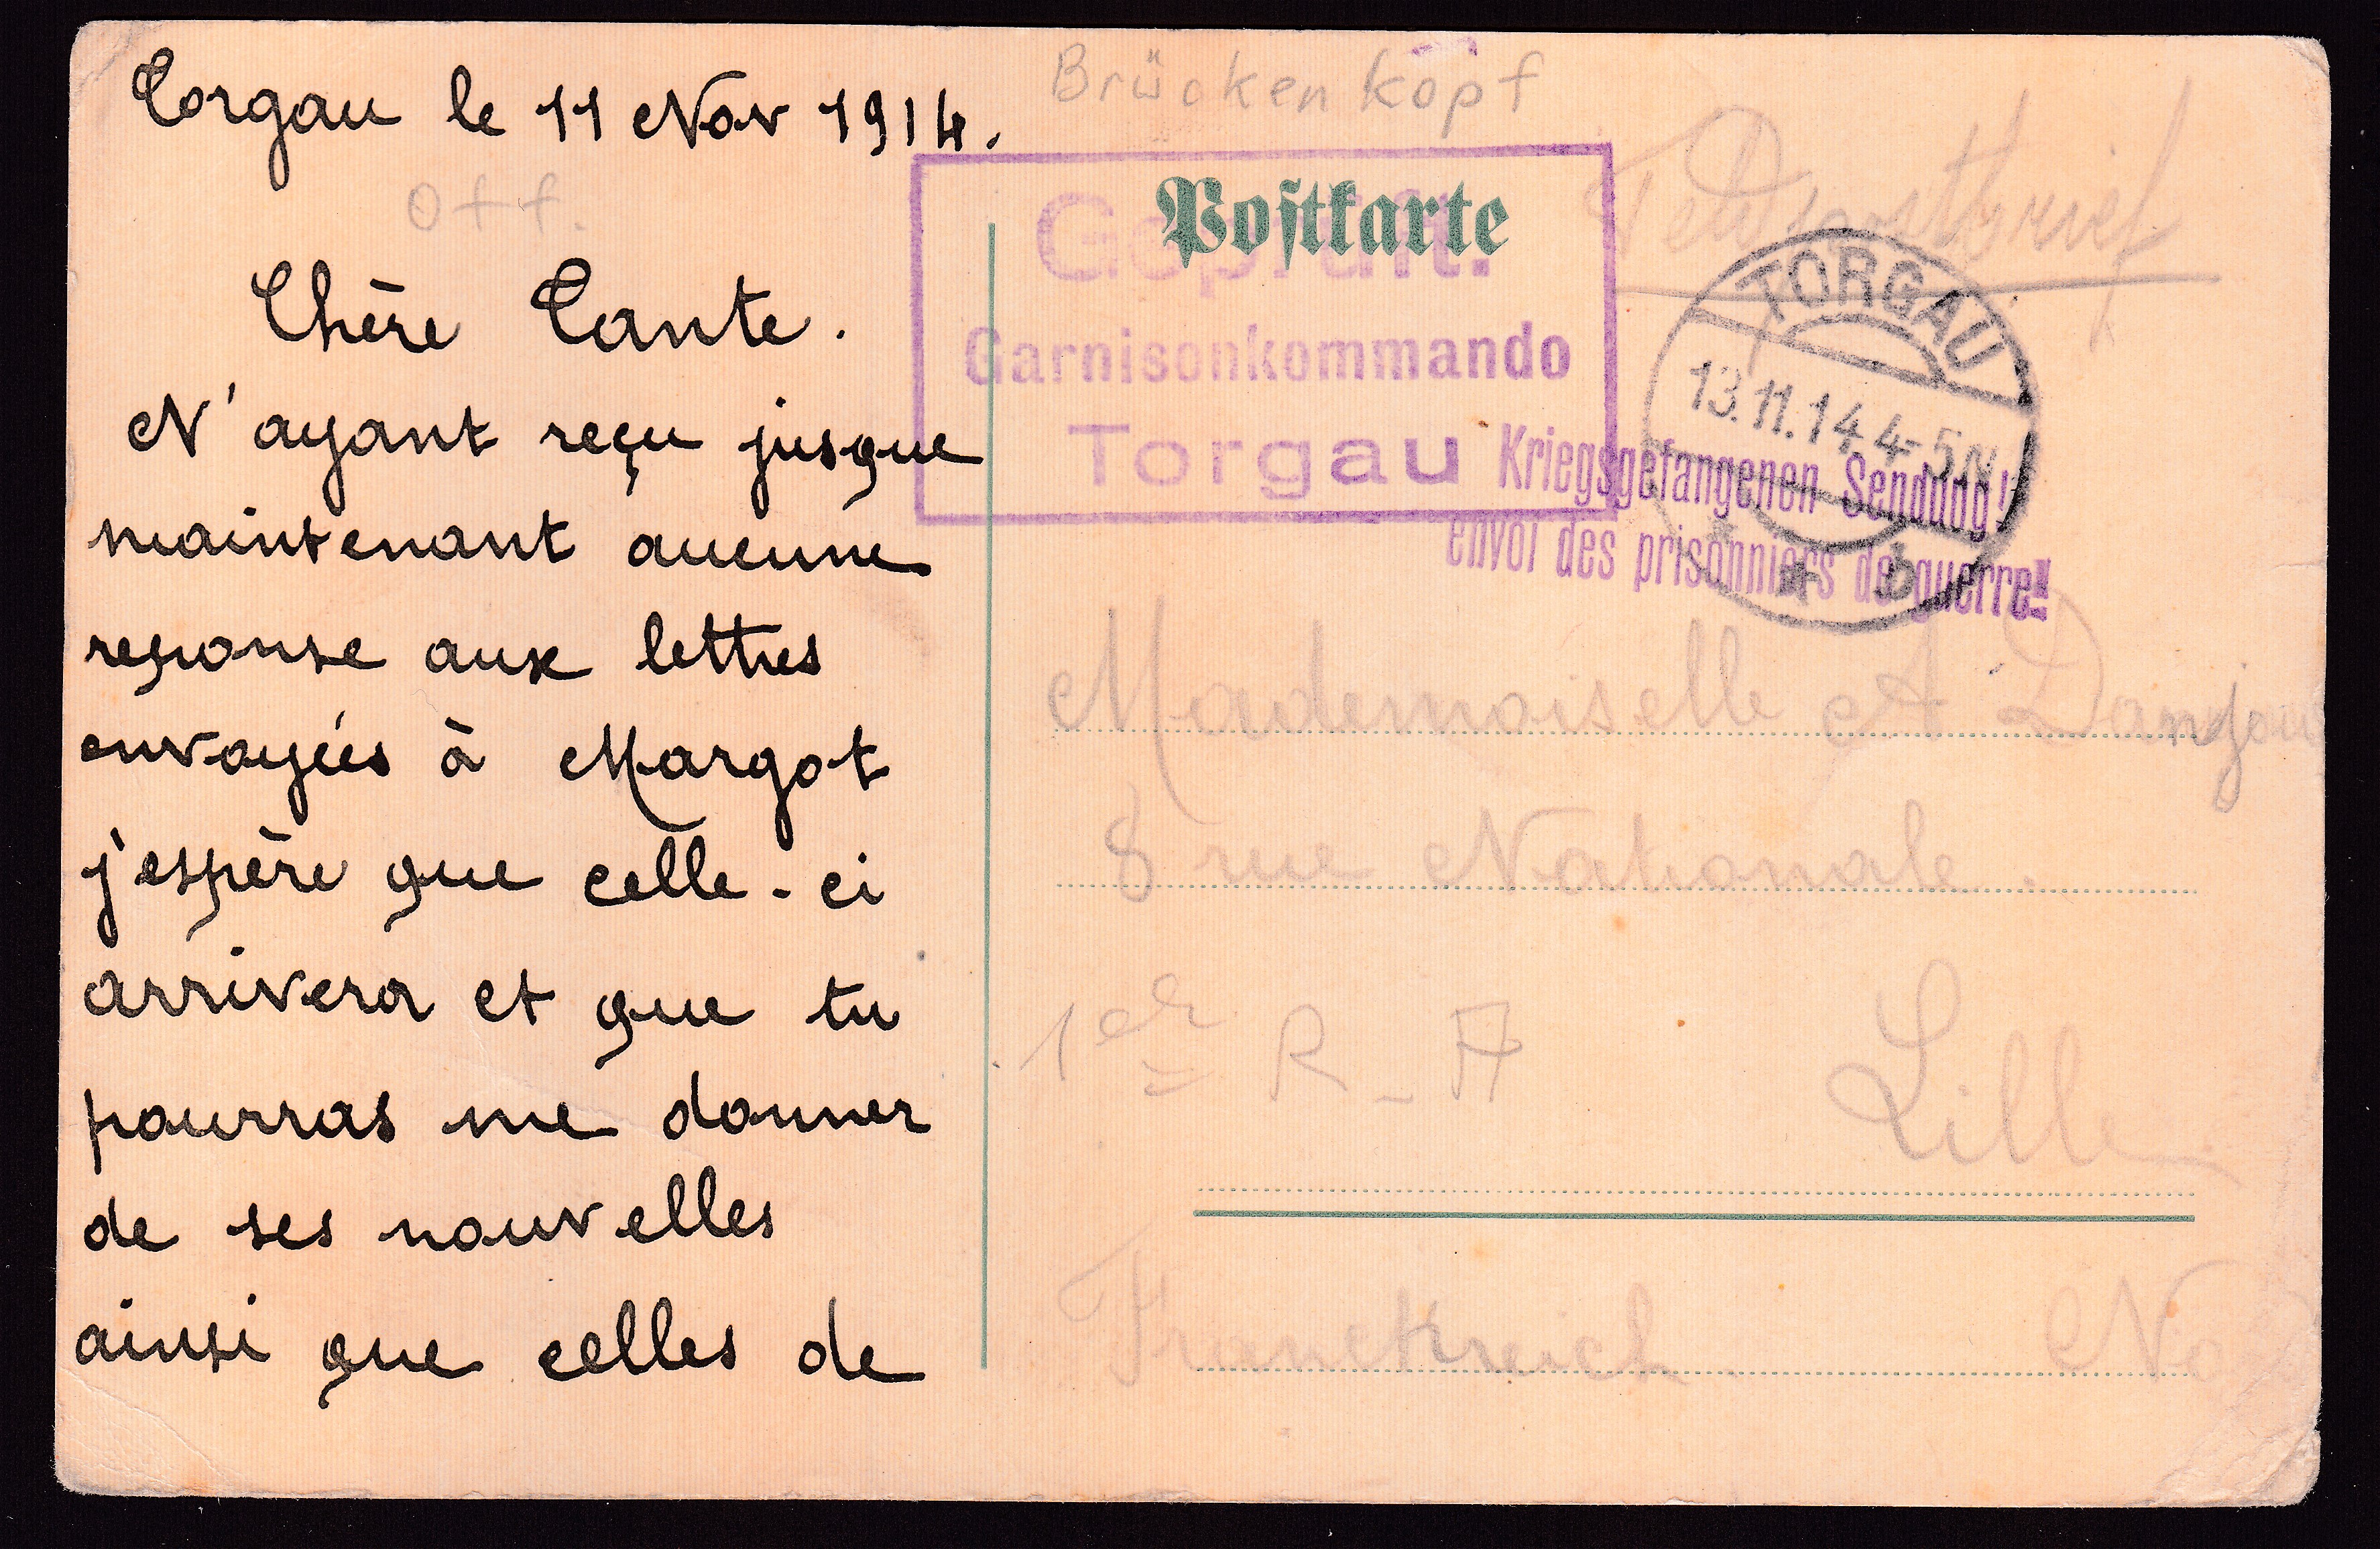 Torgau le 11 Nov 1914.
Off.
Chère Tante.
N'ayant reçu jusque
maintenant aucune
reponse aux lettres
envoyées à Margot
j'espère que celle-ci
arrivera et que tu
pourras me donner
de ses nouvelles
ainsi que celles de
Brückenkopf
Feldpostbrief
Postkarte
Geprüft.
Garnisonkommando
Torgau
TORGAU
13.11.14.4-5N
* b
Kriegsgefangenen Sendung!
envoi des prisonniers de guerre!!
Mademoiselle A Danjou
8 rue Nationale.
1er R-A
Lille
Frankreich